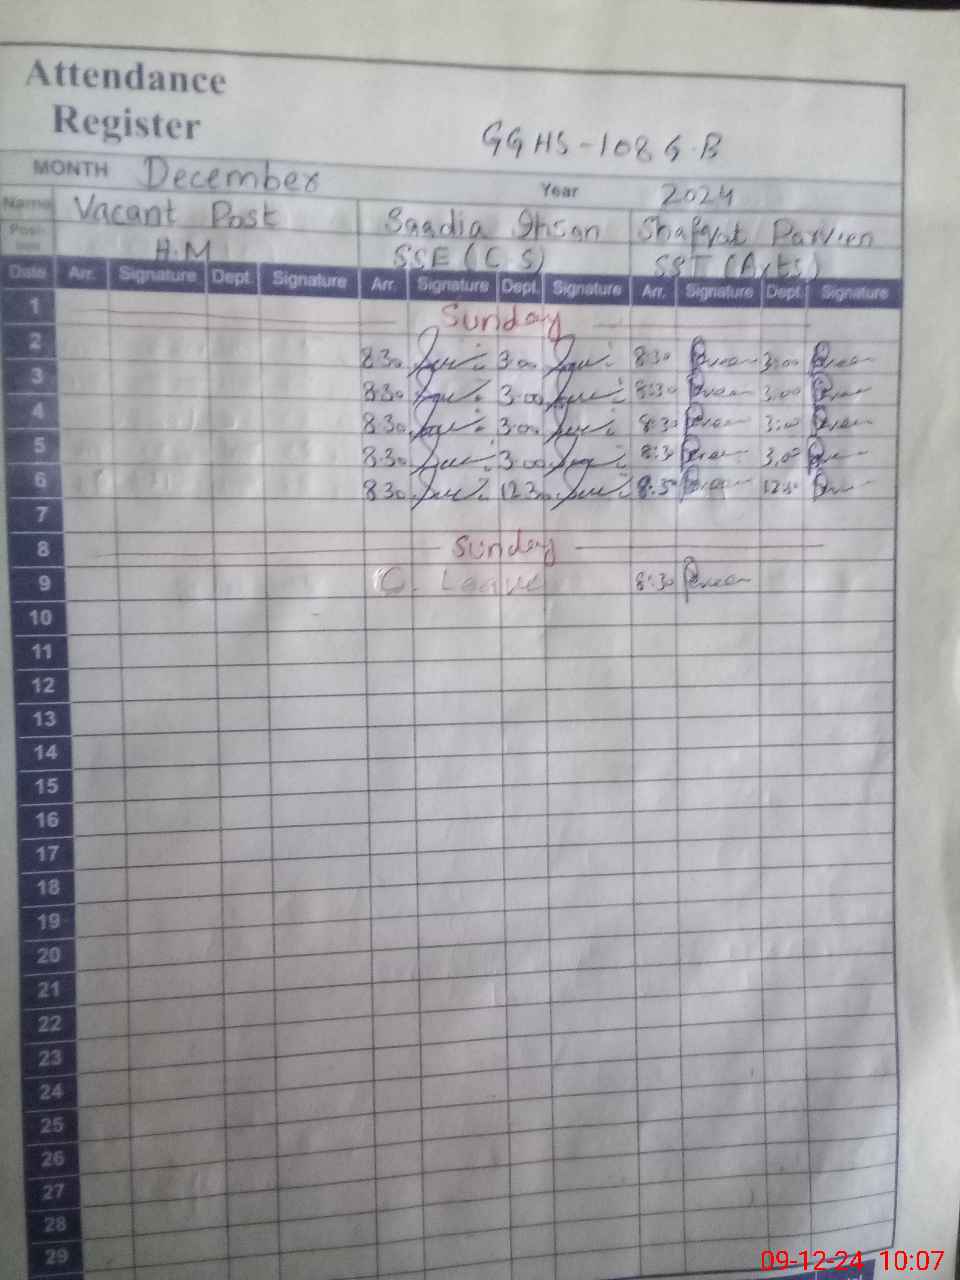 Attendance
Register
GGHS-108 G.B
MONTH December Year 2024
Name Vacant Post Saadia Ihsan Shafqat Parvien
Posi-
tion H.M SSE (C.S) SST (Arts)
Date Arr. Signature Dept. Signature Arr. Signature Dept. Signature Arr. Signature Dept. Signature
1 Sunday
2 8:30 3:00 8:30 3:00
3 8:30 3:00 8:30 3:00
4 8:30 3:00 8:30 3:00
5 8:30 3:00 8:30 3:00
6 8:30 12:30 8:30 12:30
7
8 Sunday
9 C. Leave 8:30
10
11
12
13
14
15
16
17
18
19
20
21
22
23
24
25
26
27
28
29
09-12-24 10:07